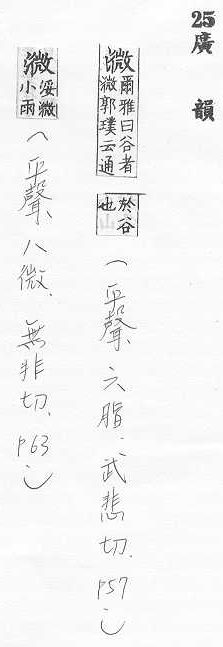 25 廣韻
溦 爾雅曰谷者
溦郭璞云通
於谷
也
(平聲、六脂、武悲切、P57)
溦 浽溦
小雨
(平聲、八微、無非切、P63)